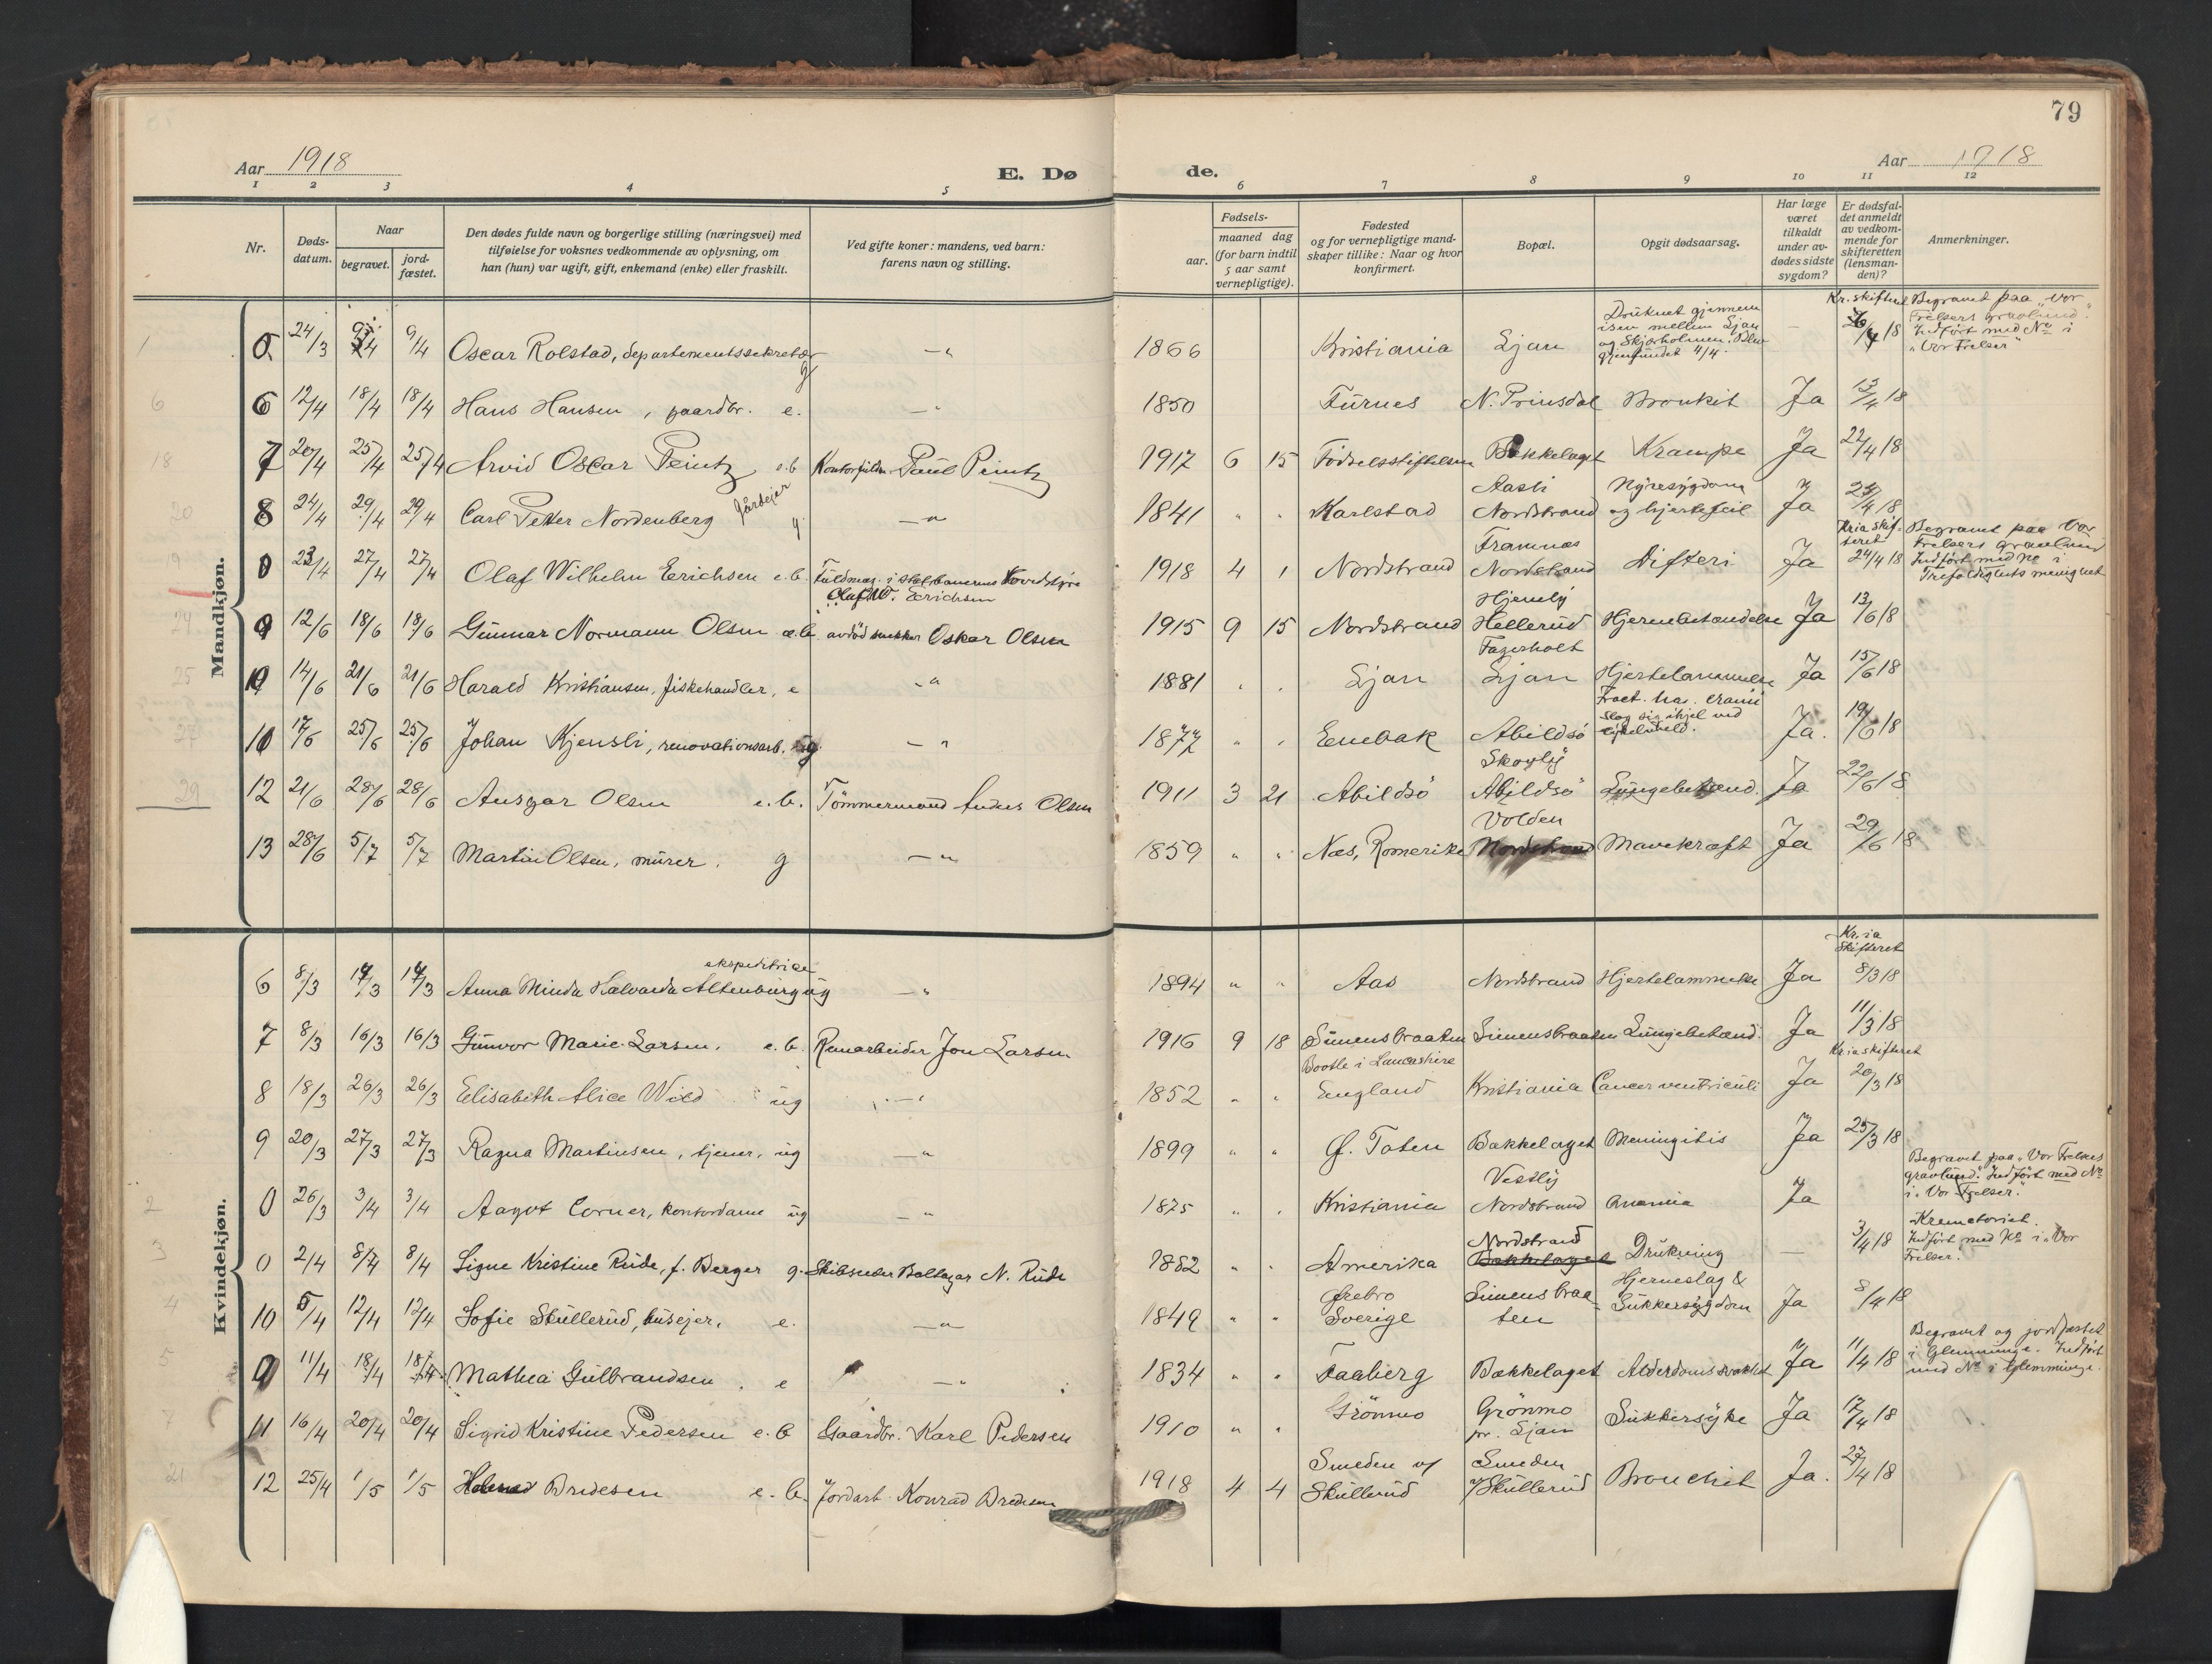 79
Aar 1918
E. Dø
de.
Aar 1918
1 2 3 4 5 6 7 8 9 10 11 12
Nr.
Døds-
datum.
Naar
begravet.
jord-
fæstet.
Den dødes fulde navn og borgerlige stilling (næringsvei) med
tilføielse for voksnes vedkommende av oplysning, om
han (hun) var ugift, gift, enkemand (enke) eller fraskilt.
Ved gifte koner: mandens, ved barn:
farens navn og stilling.
Fødsels-
aar.
maaned dag
(for barn indtil
5 aar samt
vernepligtige).
Fødested
og for vernepligtige mand-
skaper tillike: Naar og hvor
konfirmert.
Bopæl.
Opgit dødsaarsag.
Har læge
været
tilkaldt
under av-
dødes sidste
sygdom?
Er dødsfal-
det anmeldt
av vedkom-
mende for
skifteretten
(lensman-
den)?
Anmerkninger.
Mandkjøn.
0 24/3 9/4 Oscar Rolstad, departementssekretær g — " 1866 Kristiania Ljan Druknet gjennem
isen mellem Ljan
og Skjærholmen. Blev
gjenfundet 4/4. — Kr. skifteret /4 18 Begravet paa "Vor
Frelsers gravlund".
Indført med No i
"Vor Frelser"
6 12/4 18/4 18/4 Hans Hansen, gaardbr. e. — " 1850 Furnes N. Prinsdal Bronkit Ja 13/4 18
7 20/4 25/4 25/4 Arvid Oscar Peintz e.b. Kontorfuldm. Paul Peintz 1917 6 15 Födselsstiftelsen Bekkelaget Krampe Ja 22/4 18
8 24/4 29/4 29/4 Carl Petter Nordenberg Gårdejer g. — " 1841 " " Karlstad Aasli
Nordstrand Nyresygdom
og hjertefeil Ja 25/4 18
0 23/4 27/4 27/4 Olaf Wilhelm Erichsen e.b. Fuldmæg. i Statsbanernes Hovedstyre
Olaf W. Erichsen 1918 4 1 Nordstrand Framnæs
Nordstrand Difteri Ja Kria skif-
teret
24/4 18 Begravet paa Vor
Frelsers gravlund
Indført med No i
Trefoldigheds menighet
9 12/6 18/6 18/6 Gunnar Normann Olsen e.b. avdöd snekker Oskar Olsen 1915 9 15 Nordstrand Hjemly
Hellerud Hjernebetændelse Ja 13/6 18
10 14/6 21/6 21/6 Harald Kristiansen, fiskehandler, e — " 1881 " " Ljan Fagerholt
Ljan Hjertelammelse Ja 15/6 18
11 17/6 25/6 25/6 Johan Kjensli, renovationsarb. g. — " 1877 " " Enebak Abildsö Fract. bas. cranii
Slog sig ihjel ved
cykelveld. Ja. 19/6 18
12 21/6 28/6 28/6 Ansgar Olsen e.b. Tömmermand Anders Olsen 1911 3 21 Abildsö Skogly
Abildsö Lungebetænd. Ja 22/6 18
13 28/6 5/7 5/7 Martin Olsen, murer. g — " 1859 " " Næs, Romerike Volden
Nordstrand Mavekræft Ja 29/6 18
Kvindekjøn.
6 8/3 14/3 14/3 Anna Minda Halvarda Altenburg ekspeditrice ug — " 1894 " " Aas Nordstrand Hjertelammelse Ja Kr.ia
Skifteret
8/3 18
7 8/3 16/3 16/3 Gunvor Marie Larsen. e.b. Renarbeider Jon Larsen 1916 9 18 Simensbraaten Simensbraaten Lungebetænd. Ja 11/3 18
8 18/3 26/3 26/3 Elisabeth Alice Wild ug — " 1852 " " Bootle i Lancashire
England Kristiania Cancer ventriculi Ja Kria skifteret
20/3 18
9 20/3 27/3 27/3 Ragna Martinsen, tjener. ug — " 1899 " " Ø. Toten Bækkelaget Meningitis Ja 25/3 18
0 26/3 3/4 3/4 Aagot Corner, kontordame ug — " 1875 " " Kristiania Vestly
Nordstrand Anæmia Ja Begravet paa "Vor Frelsers
gravlund". Indført med No
i "Vor Frelser".
0 2/4 8/4 8/4 Signe Kristine Rude, f. Berger g. Skibsreder Baltazar N. Rude 1882 " " Amerika Nordstrand
Bækkelaget Drukning — 3/4 18 Krematoriet.
Indført med No i "Vor
Frelser".
10 5/4 12/4 12/4 Sofie Skullerud, husejer. e. — " 1849 " " Ørebro
Sverige Simensbraa-
ten Hjerneslag &
Sukkersygdom Ja 8/4 18
0 11/4 18/4 18/4 Mathea Gulbrandsen. e — " 1834 " " Faaberg Bækkelaget Alderdomssvakhet Ja 11/4 18 Begravet og jordfæstet
i Glemminge. Indført
med No i Glemminge.
11 16/4 20/4 20/4 Sigrid Kristine Pedersen e.b Gaardbr. Karl Pedersen 1910 " " Grönmo Grönmo
pr. Ljan Sukkersyke Ja 17/4 18
12 25/4 1/5 1/5 Bredesen e.b. Jordarb. Konrad Bredesen 1918 4 4 Smeden u/
Skullerud Smeden
u/Skullerud Bronchit Ja. 27/4 18